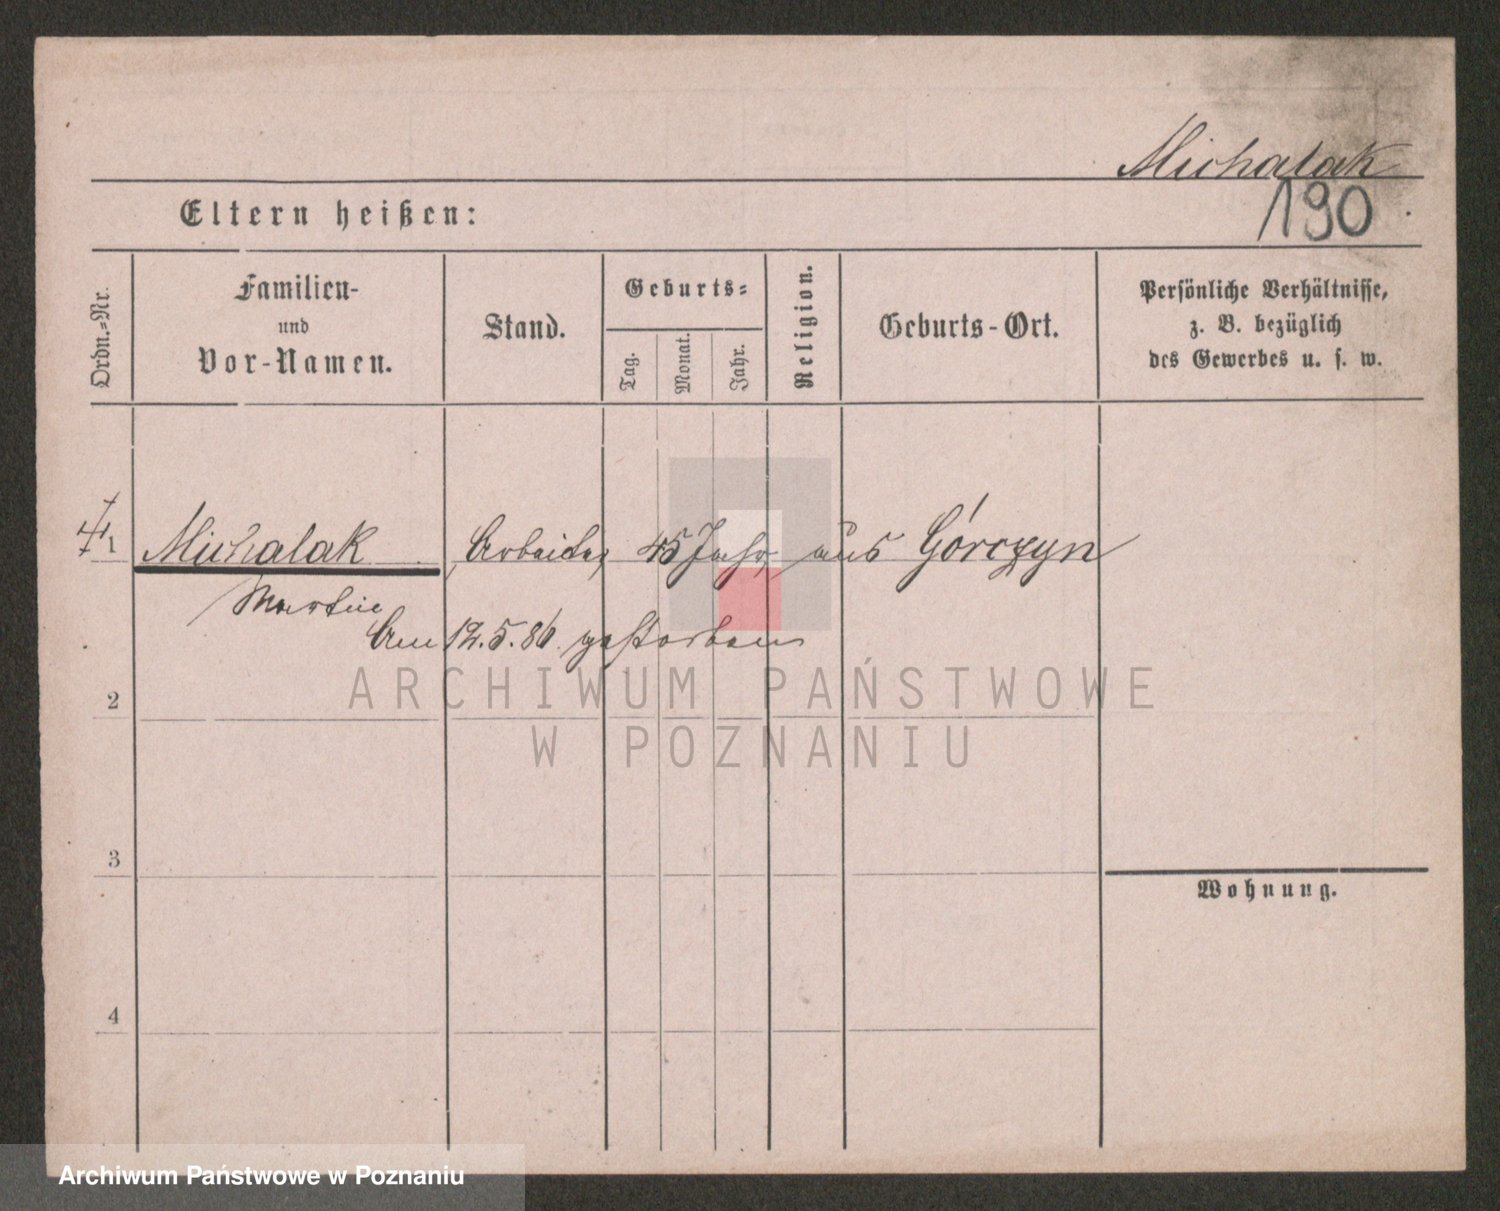 Michalak
190
Eltern heißen:
Ordn.=Nr.
Familien-
und
Vor-Namen.
Stand.
Geburts=
Tag.
Monat.
Jahr.
Religion.
Geburts-Ort.
Persönliche Verhältnisse,
z. B. bezüglich
des Gewerbes u. s. w.
1 Michalak Arbeiter 45 Jahr aus Górczyn
Martin
Am 12.5.86 gestorben
ARCHIWUM PAŃSTWOWE
W POZNANIU
2
3
Wohnung.
4
Archiwum Państwowe w Poznaniu